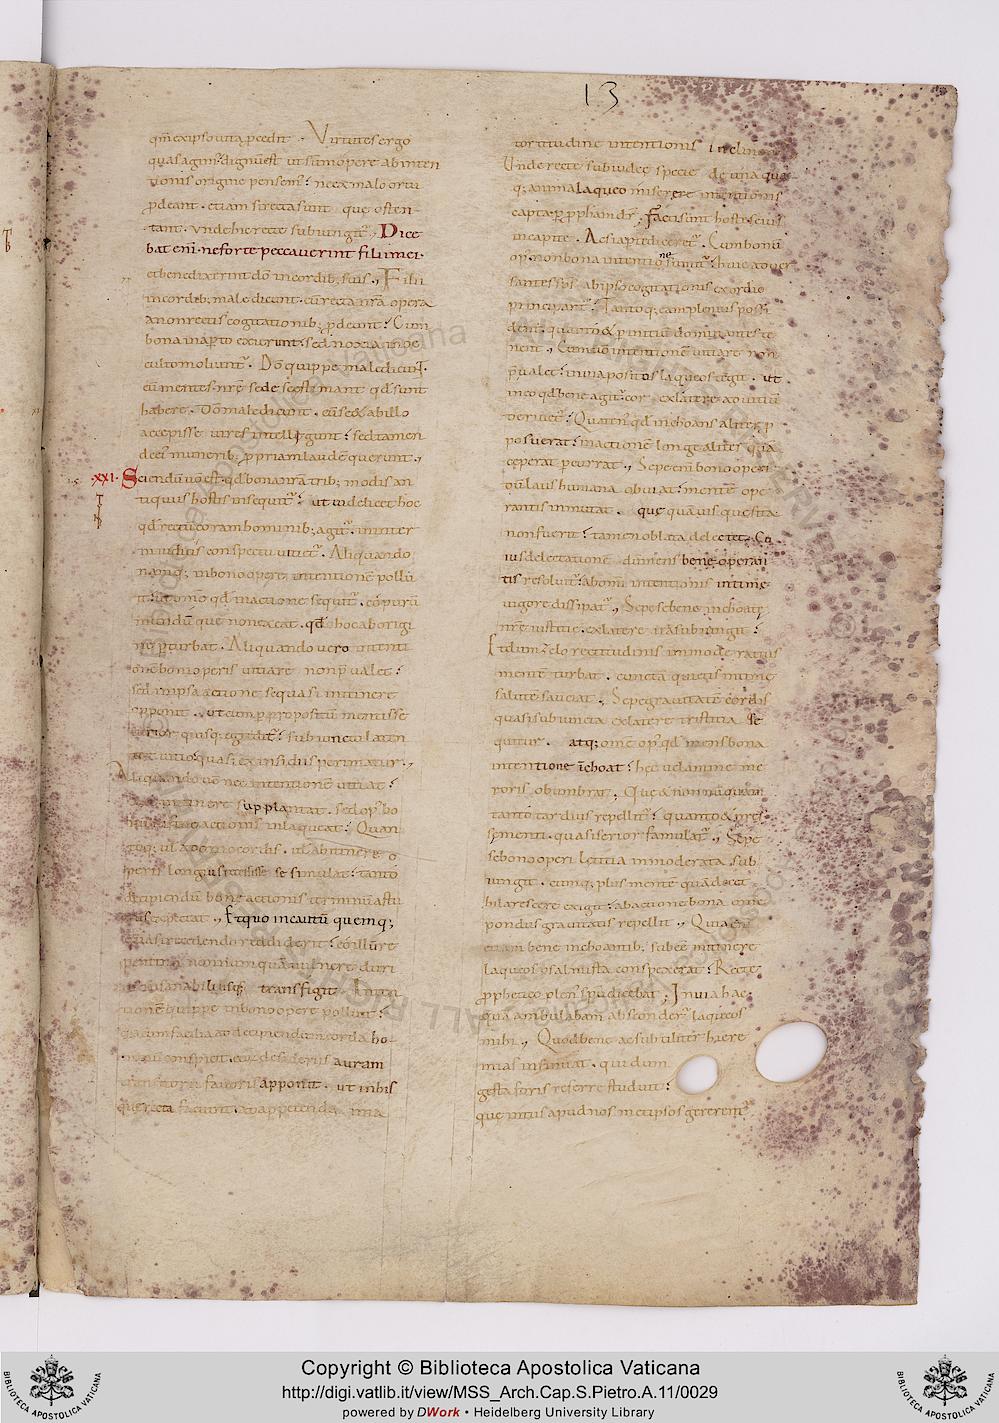 13
qm̄ ex ipso vita p̄cedit. Virtutes ergo
quas agim᷒ dignū est ut sūmopere ab inten
tionis origine pensem᷒; ne ex malo ortu
p̄deant. etiam si recta sunt que osten
tant. Unde hic recte subiungit᷒. Dice
bat eni. ne forte peccaverint filii mei.
et benedixerint dō in cordib; suis. Filii
in cordib; maledicunt. cū recta nr̄a opera
a non rectis cogitationib; p̄deunt. Cum
bona in ap̄to exerunt; sed noxia in oc
culto moliunt᷒. Dō quippe maledicunt.
cū mentes nr̄e se de se estimant qđ sunt
habere. Dō maledicunt. cū se & ab illo
accepisse vires intellegunt; sed tamen
de ei᷒ munerib; p̄priam laudē querunt.
XXI. Sciendū vo ē. qđ bona nr̄a trib; modis an
tiquus hostis insequit᷒; ut videlicet hoc
qđ rectū coram hominib; agit᷒. in inter
ni iudicis conspectu vitiet᷒. Aliquando
namq; in bono opere intentionē pollu
it. ut omē qđ in actione sequit᷒. eo purū
mundū que non exeat. qđ hoc ab origi
ne p̄turbat. Aliquando vero intenti
onē boni operis vitiare non p̄valet;
sed in ipsa actione se quasi in itinere
opponit. ut cum p̄ propositū mentis se
curior quisq; egredit᷒; subiuncto laten
ter vitio quasi ex insidiis perimatur.
Aliquando vō nec intentionē vitiat;
nec in itinere supplantat. sed op᷒ bo
nū in fine actionis inlaqueat. Quan
toq; vl̄ a domo cordis. vl̄ ab itinere o
peris longius recessisse se simulat; tanto
decipiendū bone actionis terminū astu
tius expectat. Et quo incautū quemq;
quasi recedendo reddiderit; eo illū re
pentino nonnūquā vulnere duri
us insanabiliusq; transfigit. Inten
tionē quippe in bono opere polluit;
quia cum facilia ad decipiendū corda ho
minū conspicit. eor̄ desideriis auram
transitorii favoris apponit. ut in his
que recta faciunt. ad appetenda ima
tortitudine intentionis inclinent᷒.
Unde recte sub iudeę specie de unaqua
q; anima laqueo miserere intentionis
capta p̄ p̄phā dr̄. Facti sunt hostes eius
in capite. Ac si ap̄te diceret᷒. Cum bonū
op᷒ non bona intentione sumit᷒; huic adver
santes sps̄. ab ipso cogitationis exordio
principant᷒. Tantoq; eam plenius possi
dent; quanto & p̄ initiū dominantes te
nent. Cum vō intentionē vitiare non
p̄valet; in via positos laqueos tegit. ut
in eo qđ bene agit᷒ cor ex latere ad vitiū
derivet᷒; Quaten᷒ qđ inchoans aliter p̄
posuerat; in actione longe aliter quā
ceperat percurrat. Sepe eni bono operi
dū laus humana obviat; mentē ope
rantis inmutat. que quāvis quesita
non fuerit; tamen oblata delectet. Cu
ius delectatione dū mens bene operan
tis resolvit᷒; ab omni intentionis intime
vigore dissipat᷒. Sepe se bene inchoatę
nr̄e iustitie. ex latere ira subiungit;
Et dum zelo rectitudinis inmoderatius
mentē turbat. cuncta quietis intime
salute sauciat. Sepe gravitatē cordis
quasi subiuncta ex latere tristitia se
quitur. atq; omē op᷒ qđ mens bona
intentione īchoat; hec velamine me
roris obumbrat. Que & nonnūquam
tanto tardius repellit᷒; quanto & pres
se menti. quasi serior famulat᷒. Sepe
se bono operi lętitia inmoderata sub
iungit. cumq; plus mentē quā decet
hilarescere exigit; ab actione bona omē
pondus gravitatis repellit. Quia eni
etiam bene inchoantib; subesse in itinere
laqueos psalmista conspexerat; Recte
p̄phetico plen᷒ sp̄u dicebat. In via hac
qua ambulabam absconder̄ laqueos
mihi. Quod bene ac subtiliter hiere
mias insinuat. qui dum
gesta foris referre studuit;
que intus apud nos metipsos gererent᷒.
Copyright © Biblioteca Apostolica Vaticana
http://digi.vatlib.it/view/MSS_Arch.Cap.S.Pietro.A.11/0029
powered by DWork • Heidelberg University Library
BIBLIOTECA APOSTOLICA VATICANA
BIBLIOTECA APOSTOLICA VATICANA